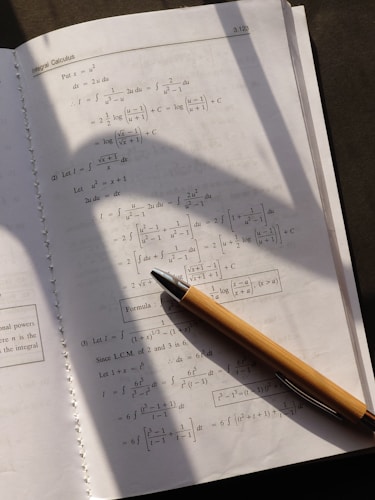 Integral Calculus 3.123
Put x = u²
dx = 2 u du
∴ I = ∫ 1/(u² − u) 2u du = ∫ 2/(u² − 1) du
= 2 · 1/2 log ((u − 1)/(u + 1)) + C = log ((u − 1)/(u + 1)) + C
= log ((√x − 1)/(√x + 1)) + C
Let I = ∫ √(x + 1)/x dx
Let u² = x + 1
2u du = dx
I = ∫ u/(u² − 1) 2u du = ∫ 2u²/(u² − 1) du
= 2 ∫ [(u² − 1)/(u² − 1) + 1/(u² − 1)] du = 2 ∫ [1 + 1/(u² − 1)] du
= 2 [∫ du + ∫ 1/(u² − 1) du] = 2 [u + 1/2 log ((u − 1)/(u + 1))] + C
= 2 √x + 1 − 1 + 1 + C
Formula 1/2a log ((x − a)/(x + a)) ; (x > a)
(b) Let I = ∫ 1/((1 + x)^(1/2) − (1 +
Since L.C.M. of 2 and 3 is 6
Let 1 + x = ∴ dx = 6
I = ∫ 6t⁵/(t³ − t²) dt = ∫ 6t⁵/(t² (t − 1))
= 6 ∫ (t³ − 1 + 1)/(t − 1) dt t³ − 1³ = (t − 1)
= 6 ∫ [(t³ − 1)/(t − 1) + 1/(t − 1)] dt = 6 ∫ ((t² + t + 1) + 1/(t − 1)) dt
onal powers
ere n is the
the integral